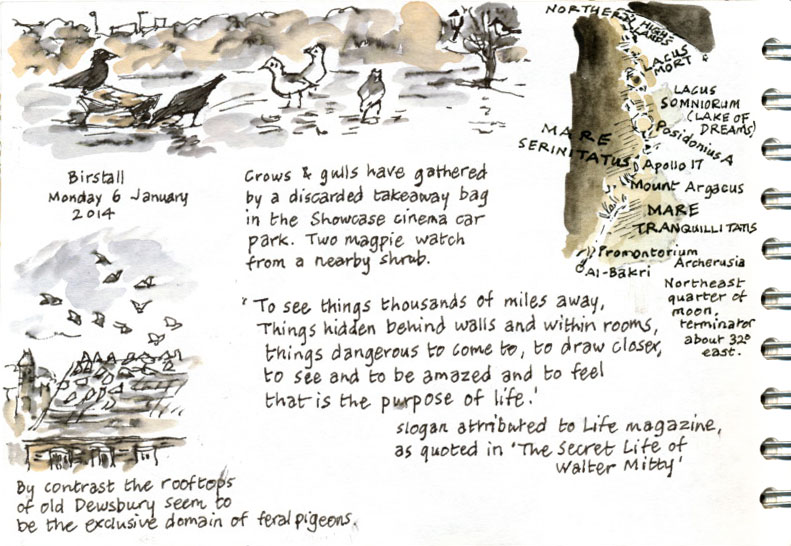 Birstall
Monday 6 January
2014
Crows & gulls have gathered
by a discarded takeaway bag
in the Showcase cinema car
park. Two magpie watch
from a nearby shrub.
NORTHERN HIGH-
LANDS
LACUS
MORT
LACUS
SOMNIORUM
(LAKE OF
DREAMS)
MARE
SERINITATUS
Posidonius A
Apollo 17
Mount Argacus
MARE
TRANQUILLITATIS
Promontorium
Archerusia
Al-Bakri
Northeast
quarter of
moon,
terminator
about 32°
east.
'To see things thousands of miles away,
Things hidden behind walls and within rooms,
things dangerous to come to, to draw closer,
to see and to be amazed and to feel
that is the purpose of life.'
slogan attributed to Life magazine,
as quoted in 'The Secret Life of
Walter Mitty'
By contrast the rooftops
of old Dewsbury seem to
be the exclusive domain of feral pigeons.